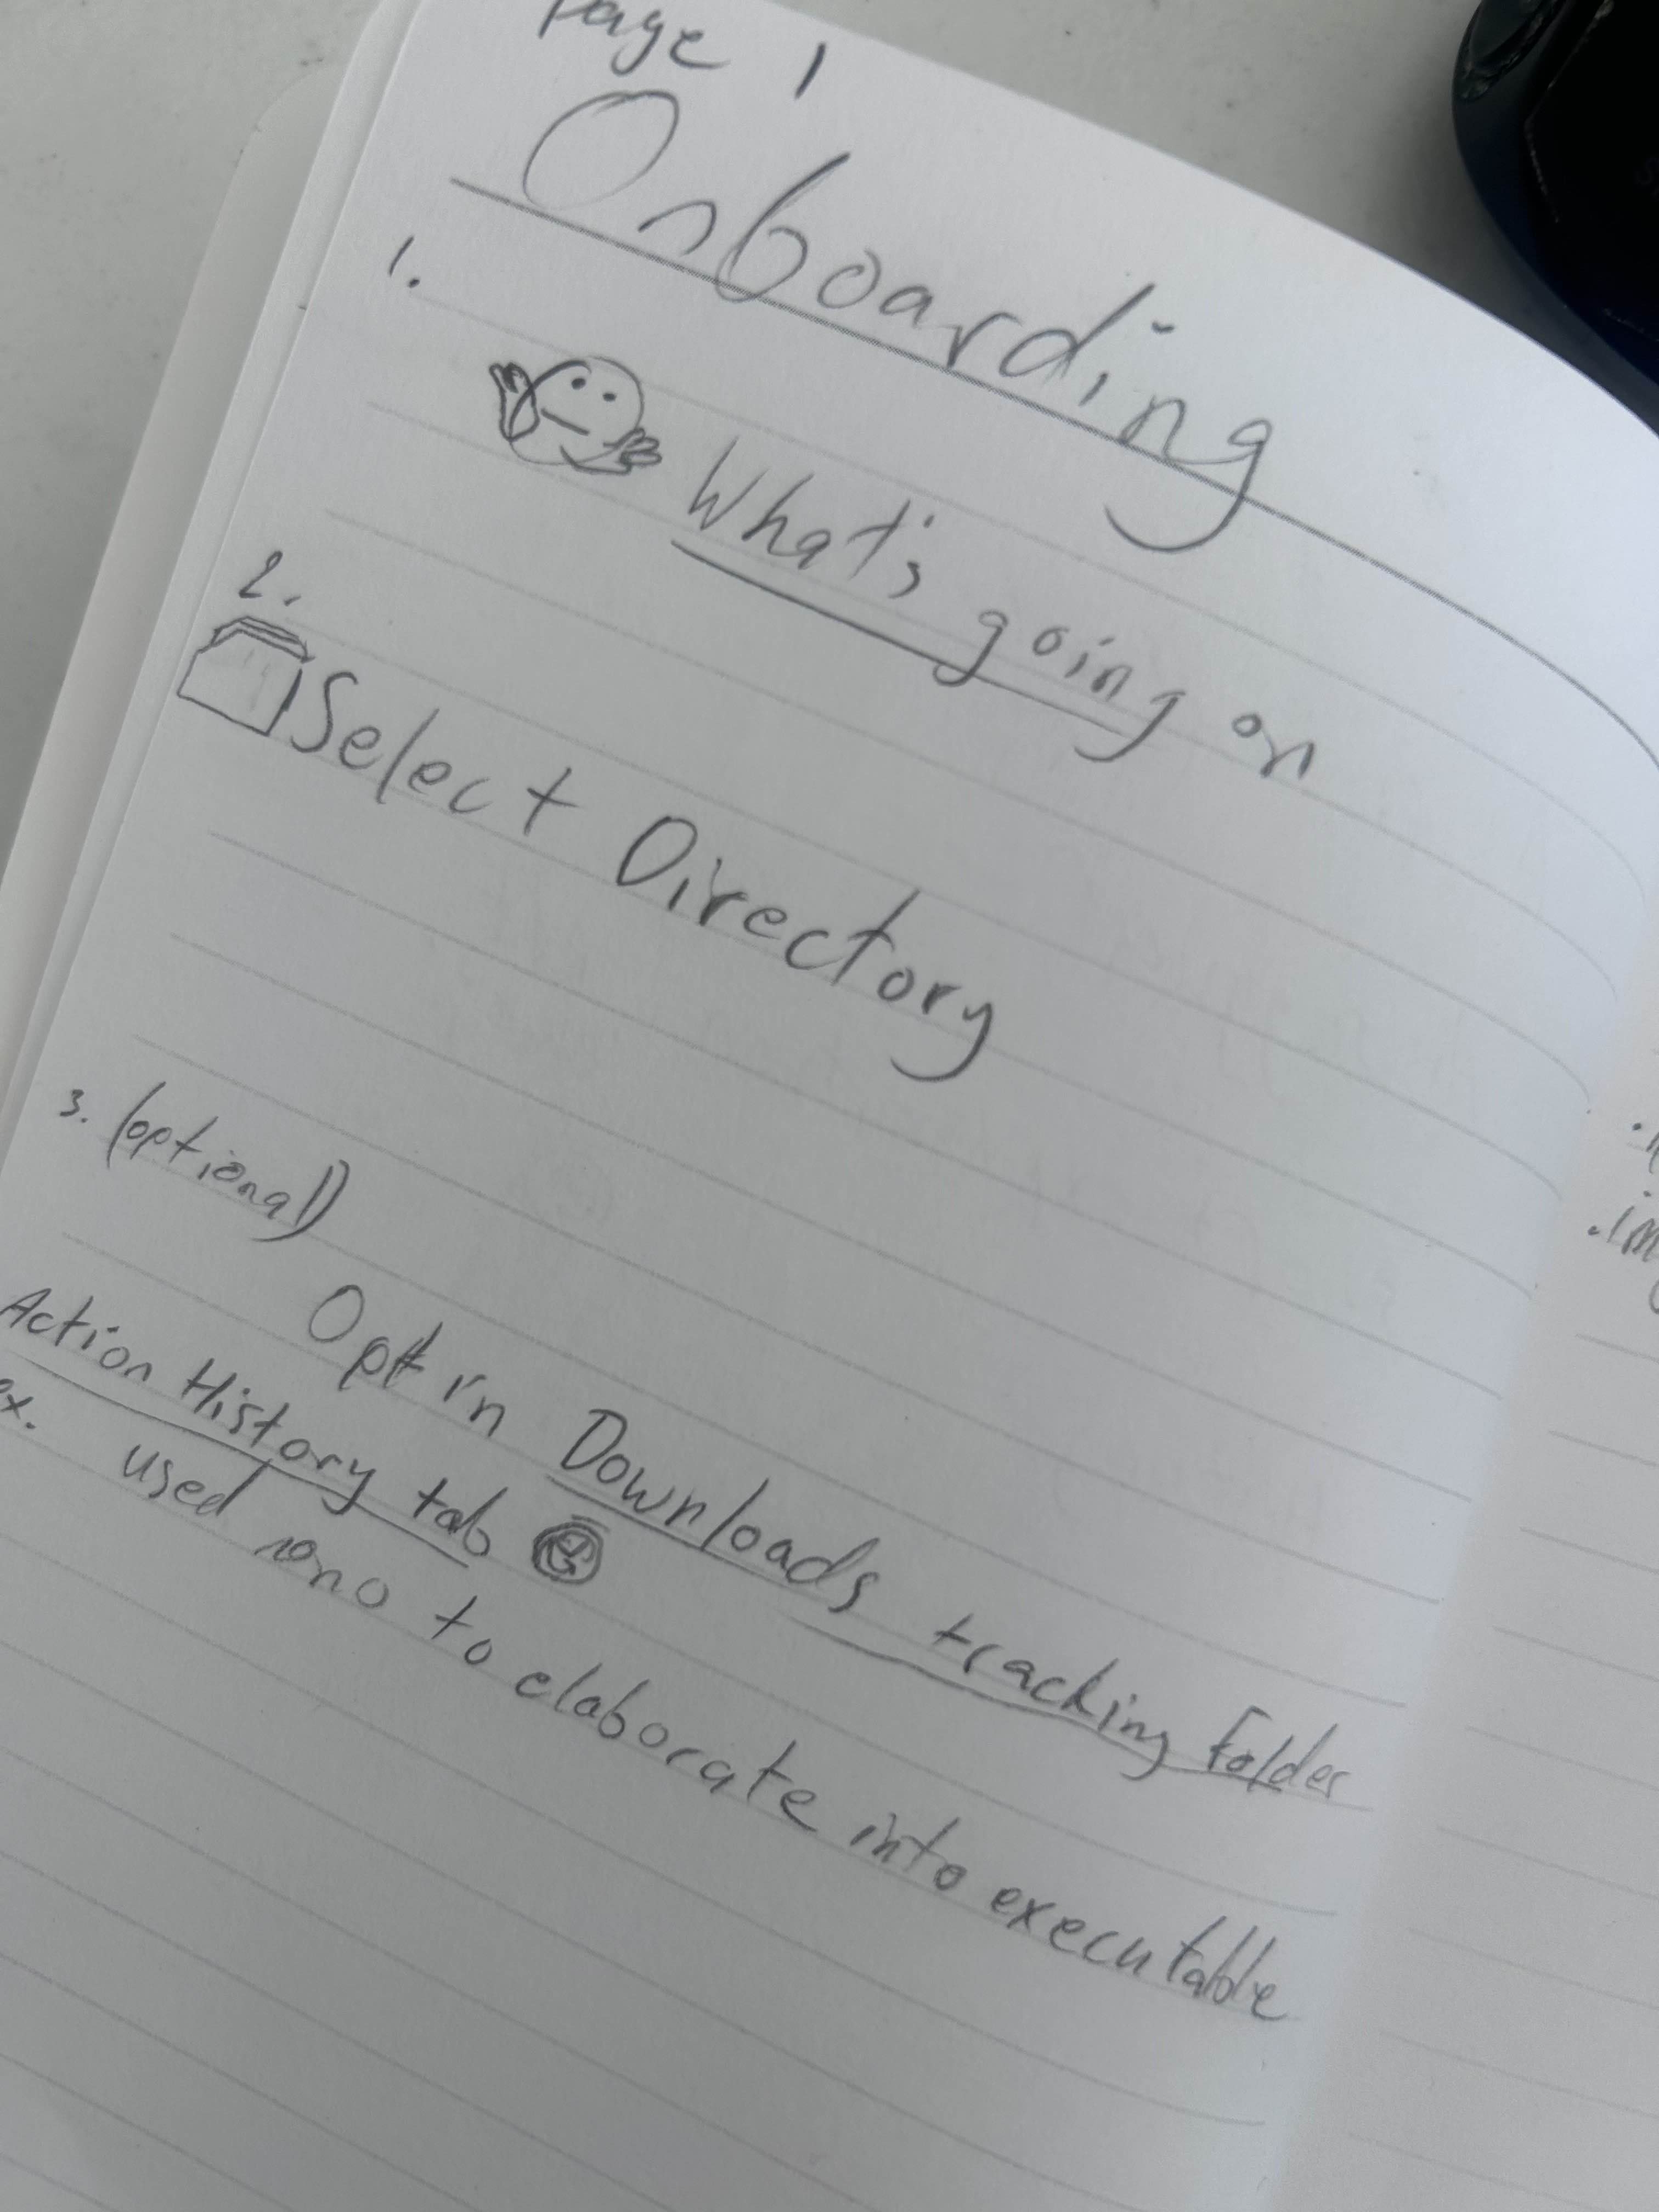 page 1
Onboarding
1.
What's going on
2.
Select Directory
3. (optional)
Opt in Downloads tracking folder
Action History tab
ex. used to elaborate into executable